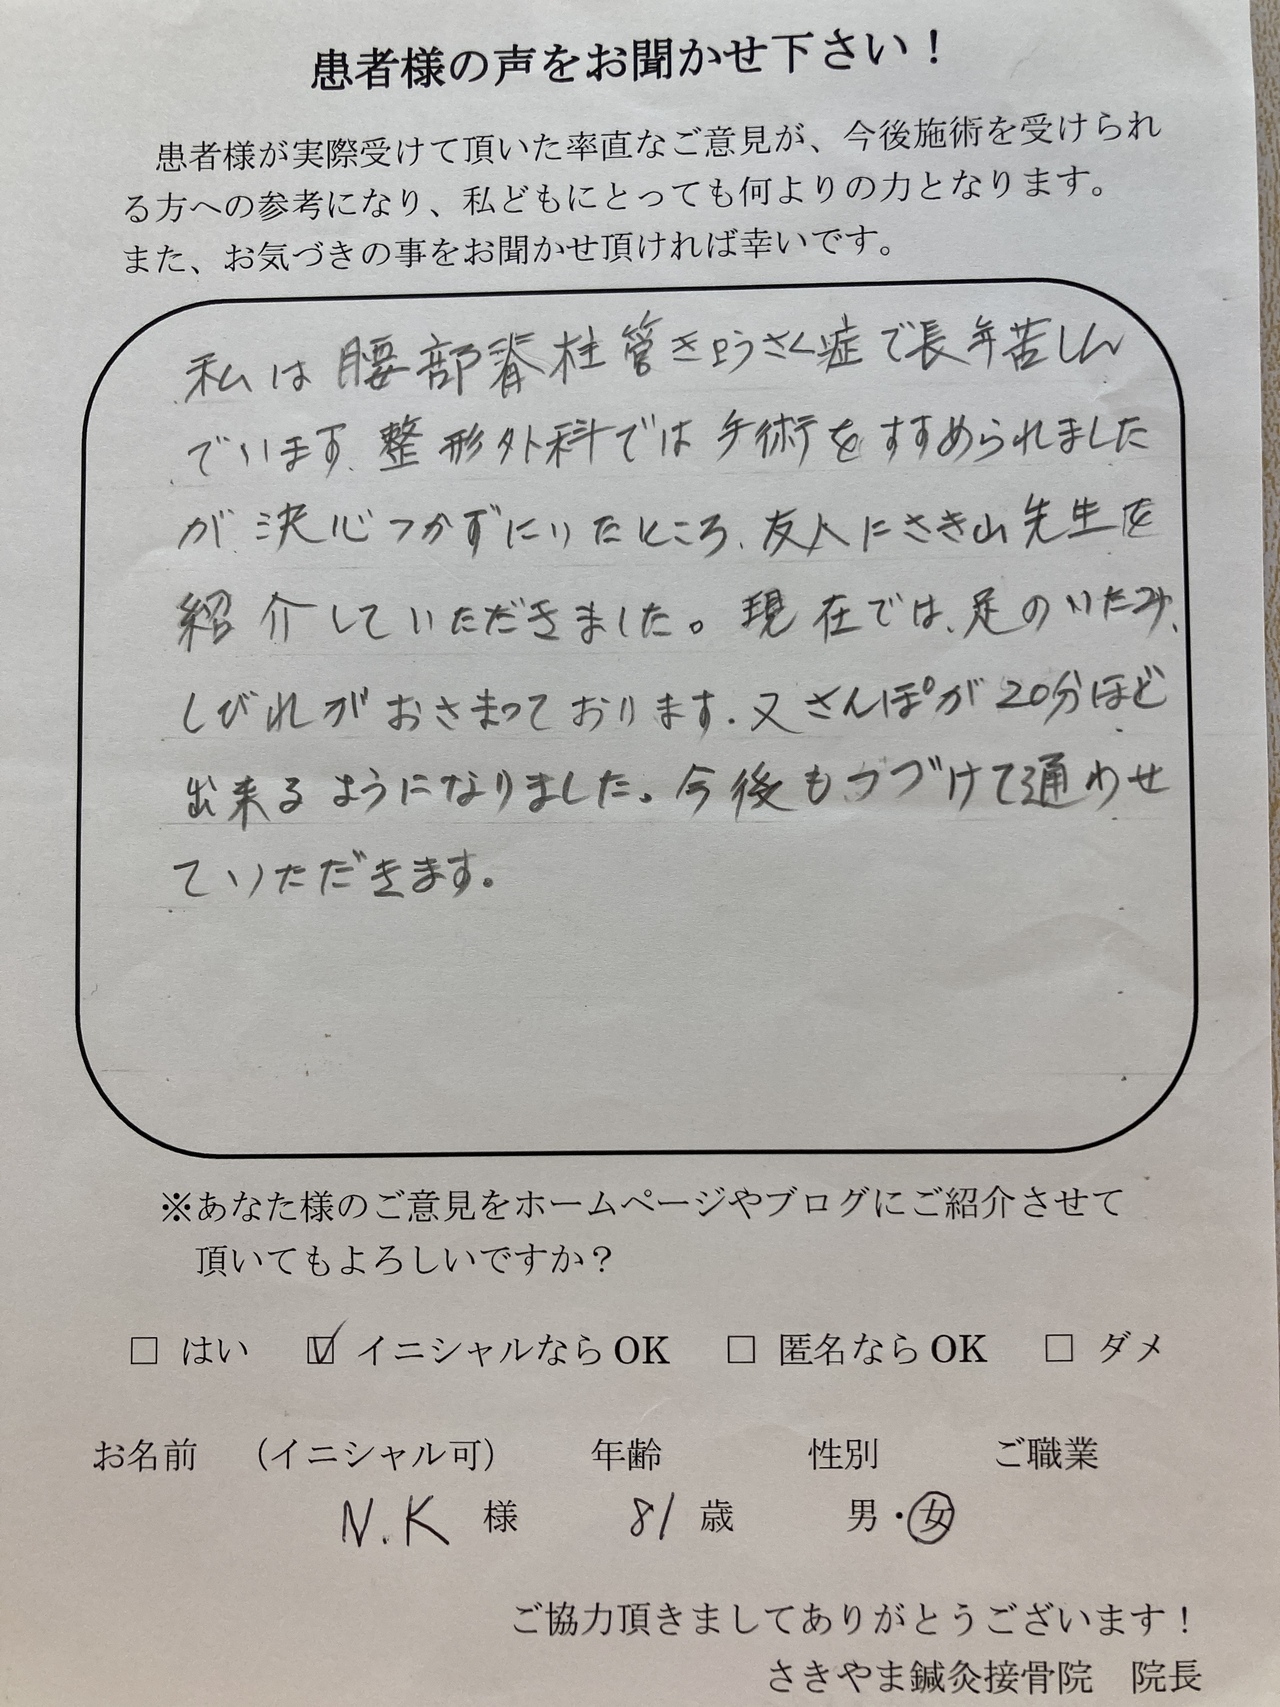 患者様の声をお聞かせ下さい！
患者様が実際受けて頂いた率直なご意見が、今後施術を受けられ
る方への参考になり、私どもにとっても何よりの力となります。
また、お気づきの事をお聞かせ頂ければ幸いです。
私は腰部脊柱管きょうさく症で長年苦しん
でいます。整形外科では手術をすすめられました
が決心つかずにいたところ、友人にさき山先生を
紹介していただきました。現在では、足のいたみ、
しびれがおさまっております。又さんぽが20分ほど
出来るようになりました。今後もつづけて通わせ
ていただきます。
※あなた様のご意見をホームページやブログにご紹介させて
頂いてもよろしいですか？
□ はい ☑ イニシャルならOK □ 匿名ならOK □ ダメ
お名前 （イニシャル可） 年齢 性別 ご職業
N.K 様 81 歳 男・女
ご協力頂きましてありがとうございます！
さきやま鍼灸接骨院 院長